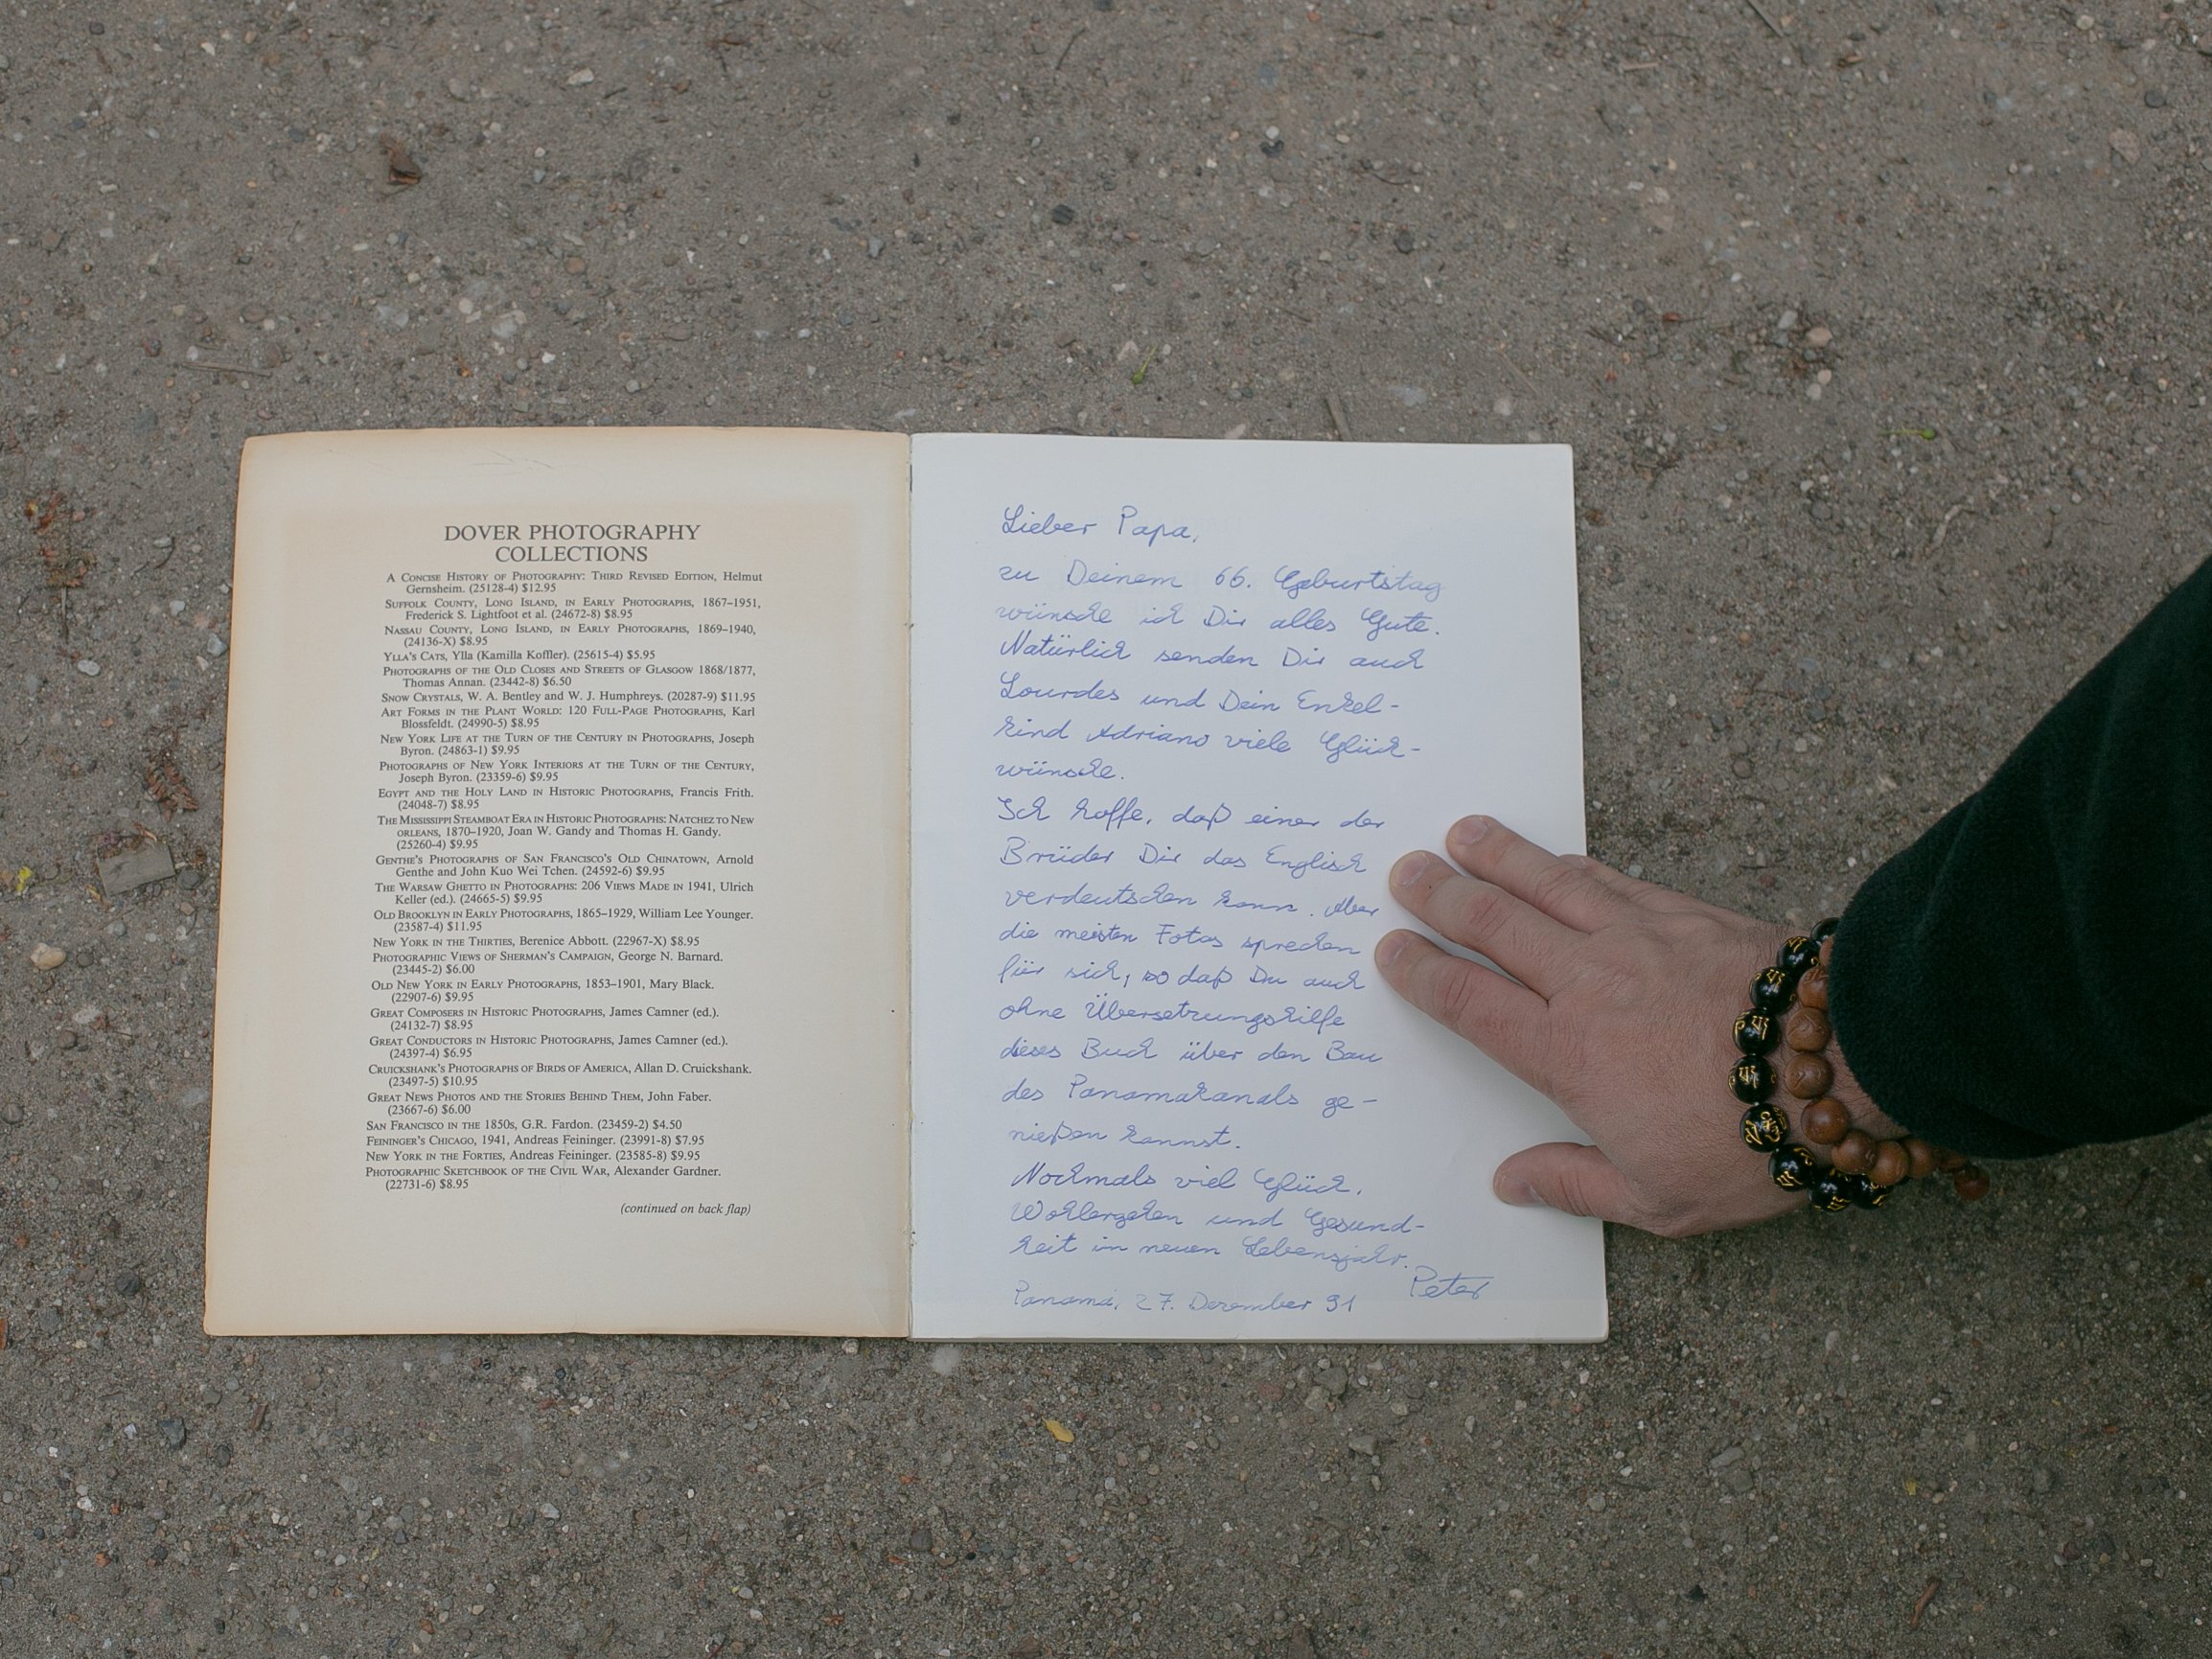 DOVER PHOTOGRAPHY
COLLECTIONS
A Concise History of Photography: Third Revised Edition, Helmut
Gernsheim. (25128-4) $12.95
Suffolk County, Long Island, in Early Photographs, 1867–1951,
Frederick S. Lightfoot et al. (24672-8) $8.95
Nassau County, Long Island, in Early Photographs, 1869–1940,
(24136-X) $8.95
Ylla's Cats, Ylla (Kamilla Koffler). (25615-4) $5.95
Photographs of the Old Closes and Streets of Glasgow 1868/1877,
Thomas Annan. (23442-8) $6.50
Snow Crystals, W. A. Bentley and W. J. Humphreys. (20287-9) $11.95
Art Forms in the Plant World: 120 Full-Page Photographs, Karl
Blossfeldt. (24990-5) $8.95
New York Life at the Turn of the Century in Photographs, Joseph
Byron. (24863-1) $9.95
Photographs of New York Interiors at the Turn of the Century,
Joseph Byron. (23359-6) $9.95
Egypt and the Holy Land in Historic Photographs, Francis Frith.
(24048-7) $8.95
The Mississippi Steamboat Era in Historic Photographs: Natchez to New
orleans, 1870–1920, Joan W. Gandy and Thomas H. Gandy.
(25260-4) $9.95
Genthe's Photographs of San Francisco's Old Chinatown, Arnold
Genthe and John Kuo Wei Tchen. (24592-6) $9.95
The Warsaw Ghetto in Photographs: 206 Views Made in 1941, Ulrich
Keller (ed.). (24665-5) $9.95
Old Brooklyn in Early Photographs, 1865–1929, William Lee Younger.
(23587-4) $11.95
New York in the Thirties, Berenice Abbott. (22967-X) $8.95
Photographic Views of Sherman's Campaign, George N. Barnard.
(23445-2) $6.00
Old New York in Early Photographs, 1853–1901, Mary Black.
(22907-6) $9.95
Great Composers in Historic Photographs, James Camner (ed.).
(24132-7) $8.95
Great Conductors in Historic Photographs, James Camner (ed.).
(24397-4) $6.95
Cruickshank's Photographs of Birds of America, Allan D. Cruickshank.
(23497-5) $10.95
Great News Photos and the Stories Behind Them, John Faber.
(23667-6) $6.00
San Francisco in the 1850s, G.R. Fardon. (23459-2) $4.50
Feininger's Chicago, 1941, Andreas Feininger. (23991-8) $7.95
New York in the Forties, Andreas Feininger. (23585-8) $9.95
Photographic Sketchbook of the Civil War, Alexander Gardner.
(22731-6) $8.95
(continued on back flap)
Lieber Papa,
zu Deinem 66. Geburtstag
wünsche ich Dir alles Gute.
Natürlich senden Dir auch
Lourdes und Dein Enkel-
kind Adriano viele Glück-
wünsche.
Ich hoffe, daß einer der
Brüder Dir das Englisch
verdeutschen kann. Aber
die meisten Fotos sprechen
für sich, so daß Du auch
ohne Übersetzungshilfe
dieses Buch über den Bau
des Panamakanals ge-
nießen kannst.
Nochmals viel Glück,
Wohlergehen und Gesund-
heit im neuen Lebensjahr.
Peter
Panamá, 27. Dezember 91